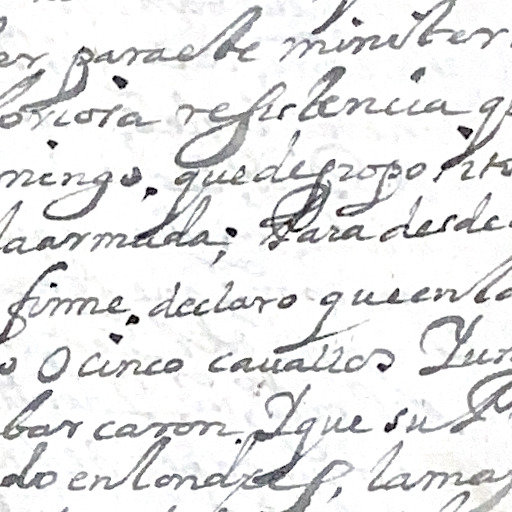 er para este minister
loriosa resistencia q
mingo, que de proposito
la armada; Para desde
firme, declaro que en la
o O cinco cauallos Y un
barcaron. Y que su P
do en londres, la may